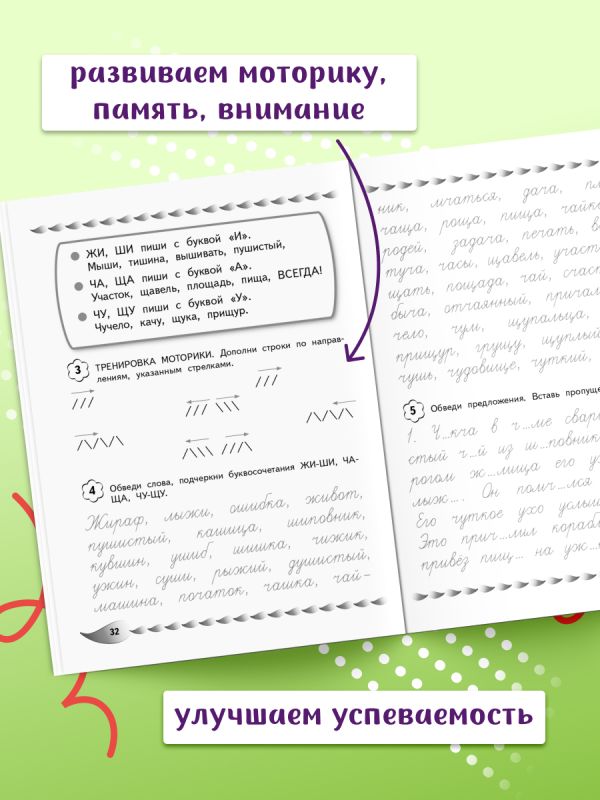 развиваем моторику,
память, внимание
ЖИ, ШИ пиши с буквой «И».
Мыши, тишина, вышивать, пушистый,
ЧА, ЩА пиши с буквой «А».
Участок, щавель, площадь, пища, ВСЕГДА!
ЧУ, ЩУ пиши с буквой «У».
Чучело, качу, щука, прищур.
3 ТРЕНИРОВКА МОТОРИКИ. Дополни строки по направ-
лениям, указанным стрелками.
4 Обведи слова, подчеркни буквосочетания ЖИ-ШИ, ЧА-
ЩА, ЧУ-ЩУ.
Жираф, лыжи, ошибка, живот,
пушистый, кашица, шиповник,
кувшин, ушиб, шишка, чижик,
ужин, суши, рыжий, душистый,
машина, початок, чашка, чай-
32
ник, мчаться, дача, пл
чаща, роща, пища, чайка
родей, задача, печать, в
туча, часы, щавель, участ
щать, пощада, чай, счаст
быча, отчаянный, причал
чело, чум, щупальца,
прищур, грущу, щуплый
чушь, чудовище, чуткий,
5 Обведи предложения. Вставь пропуще
1. Ч...кча в ч...ме свари
стый ч...й из ш...повник
рогом ж...лища его у
лыж.... Он помч...лся
Его чуткое ухо услыш
Это прич...лил корабл
привёз пищ... на уж...
улучшаем успеваемость